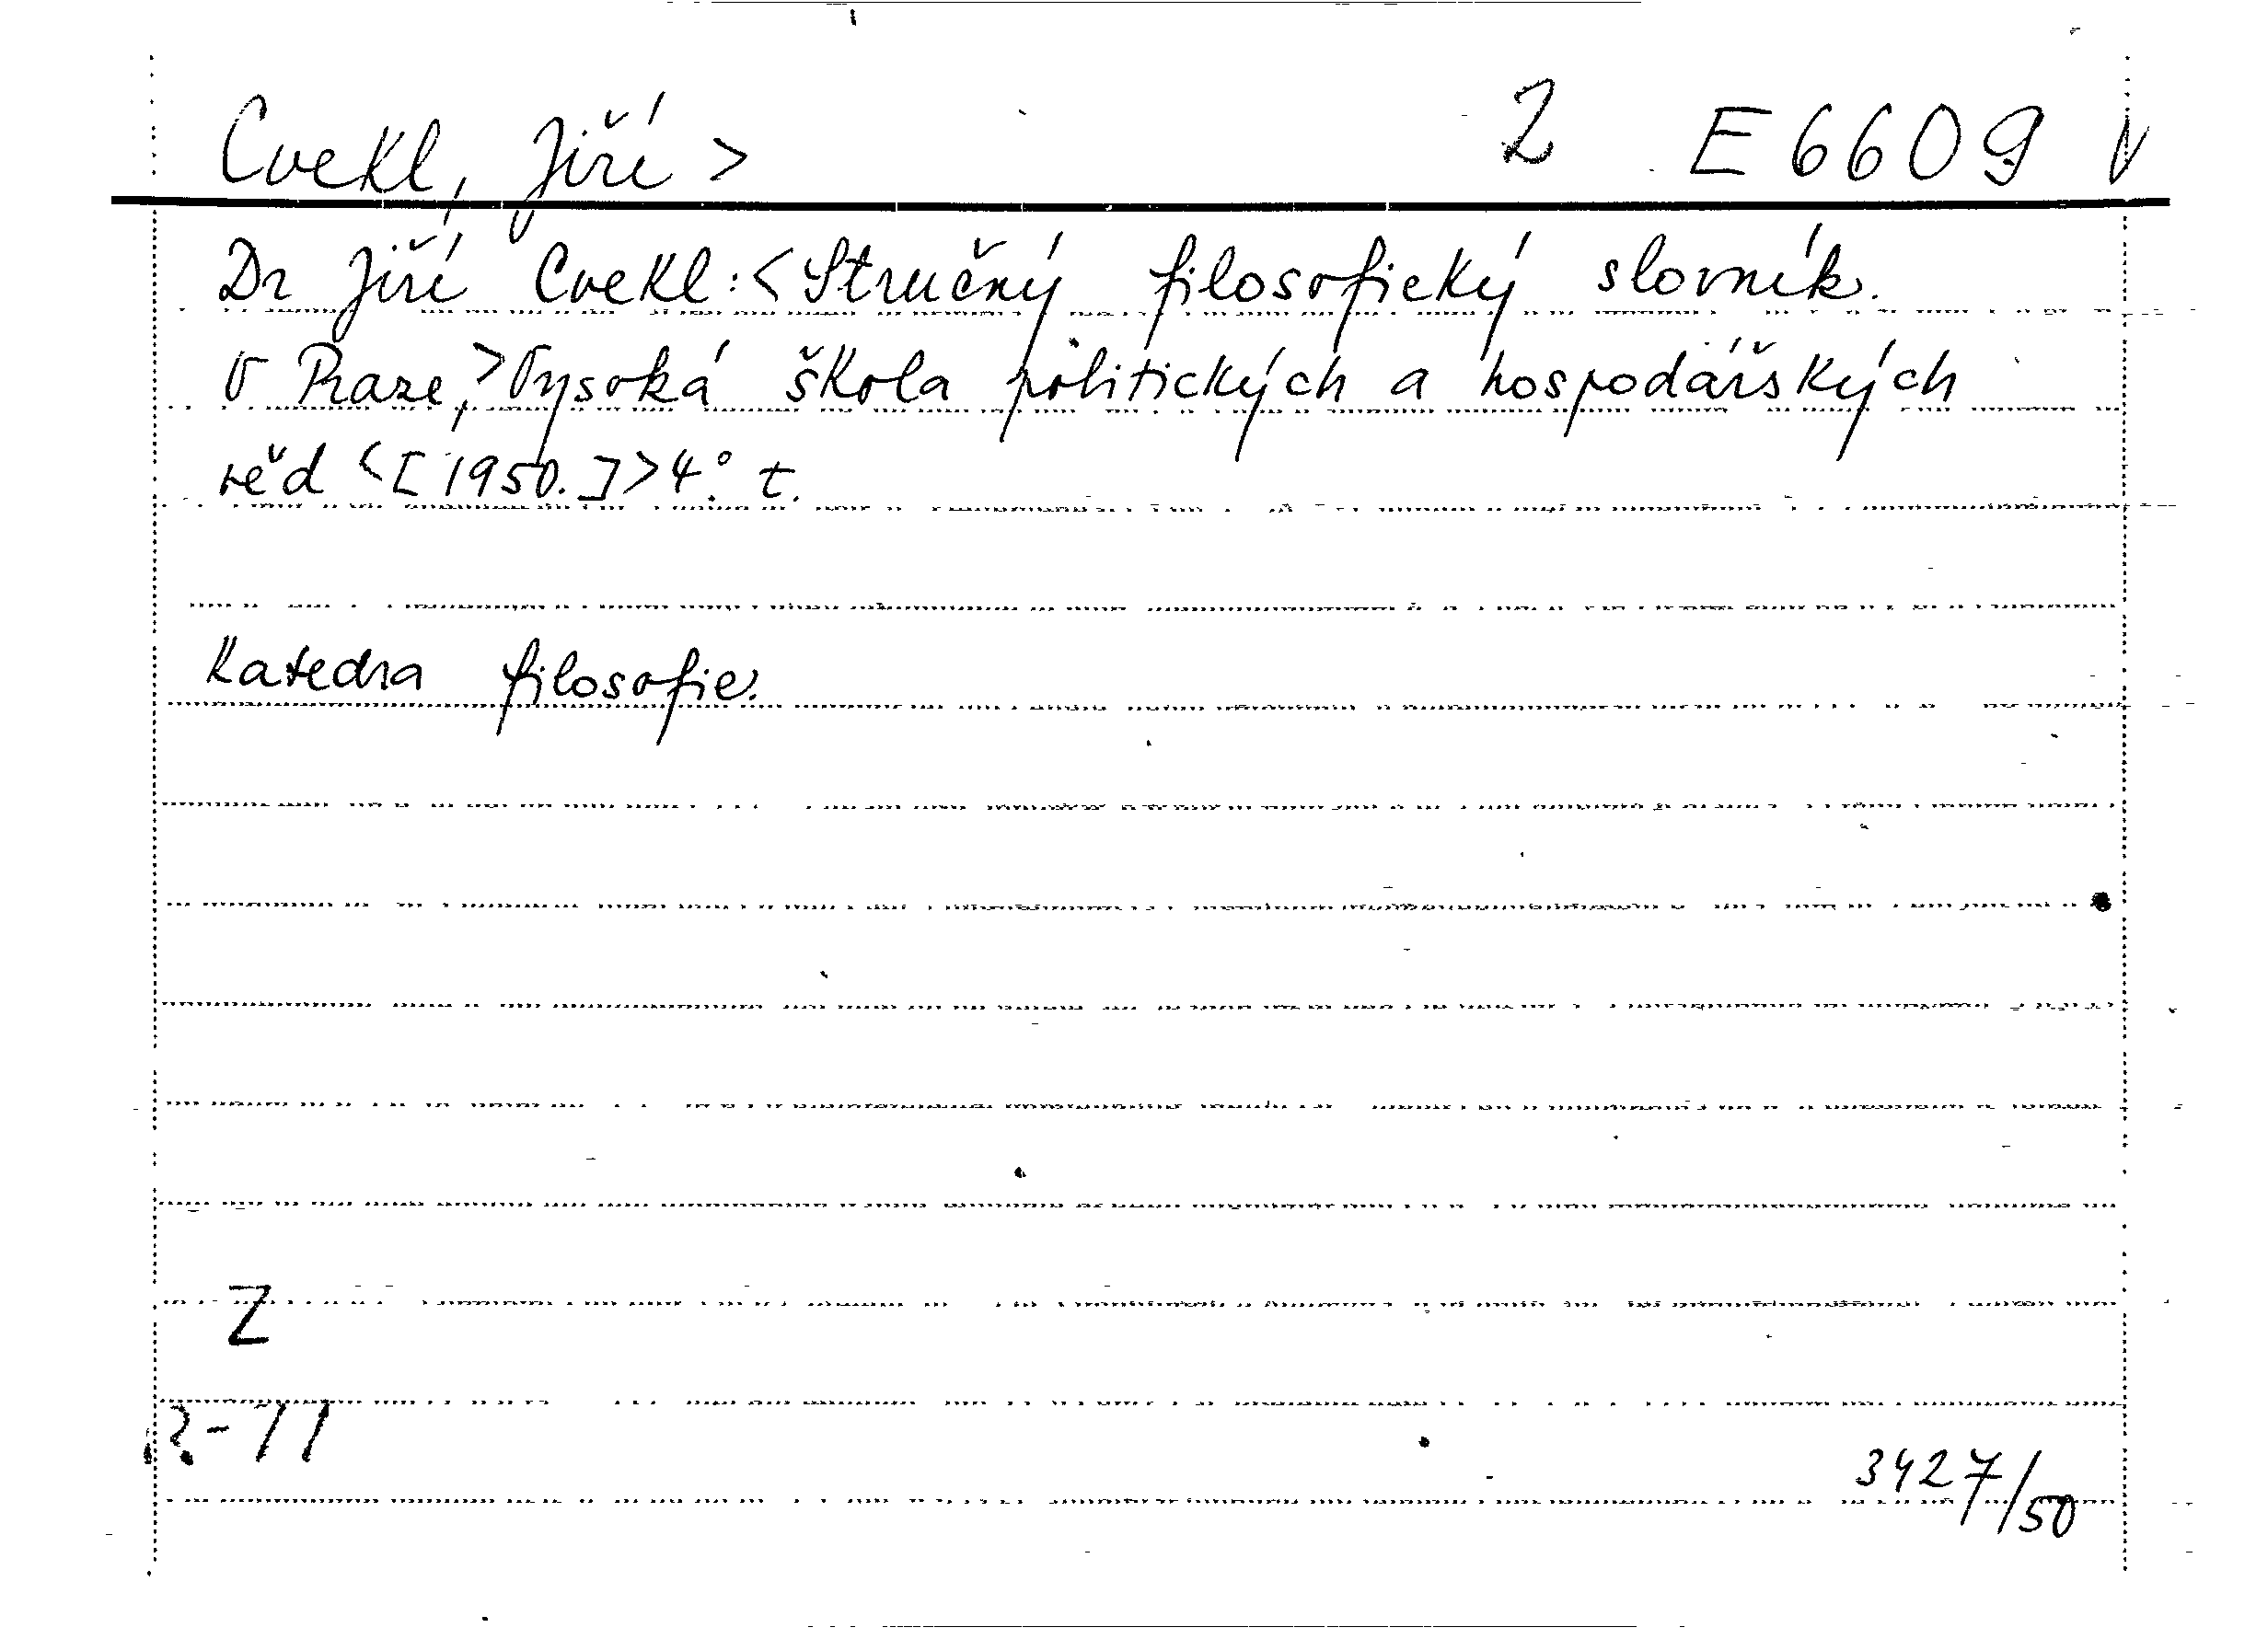 Cvekl, Jiří > 2 E6609 V
Dr Jiří Cvekl: < Stručný filosofický slovník.
V Praze, > Vysoká škola politických a hospodářských
věd < [1950.] > 4°. t.
Katedra filosofie.
Z
R-11
3427/50